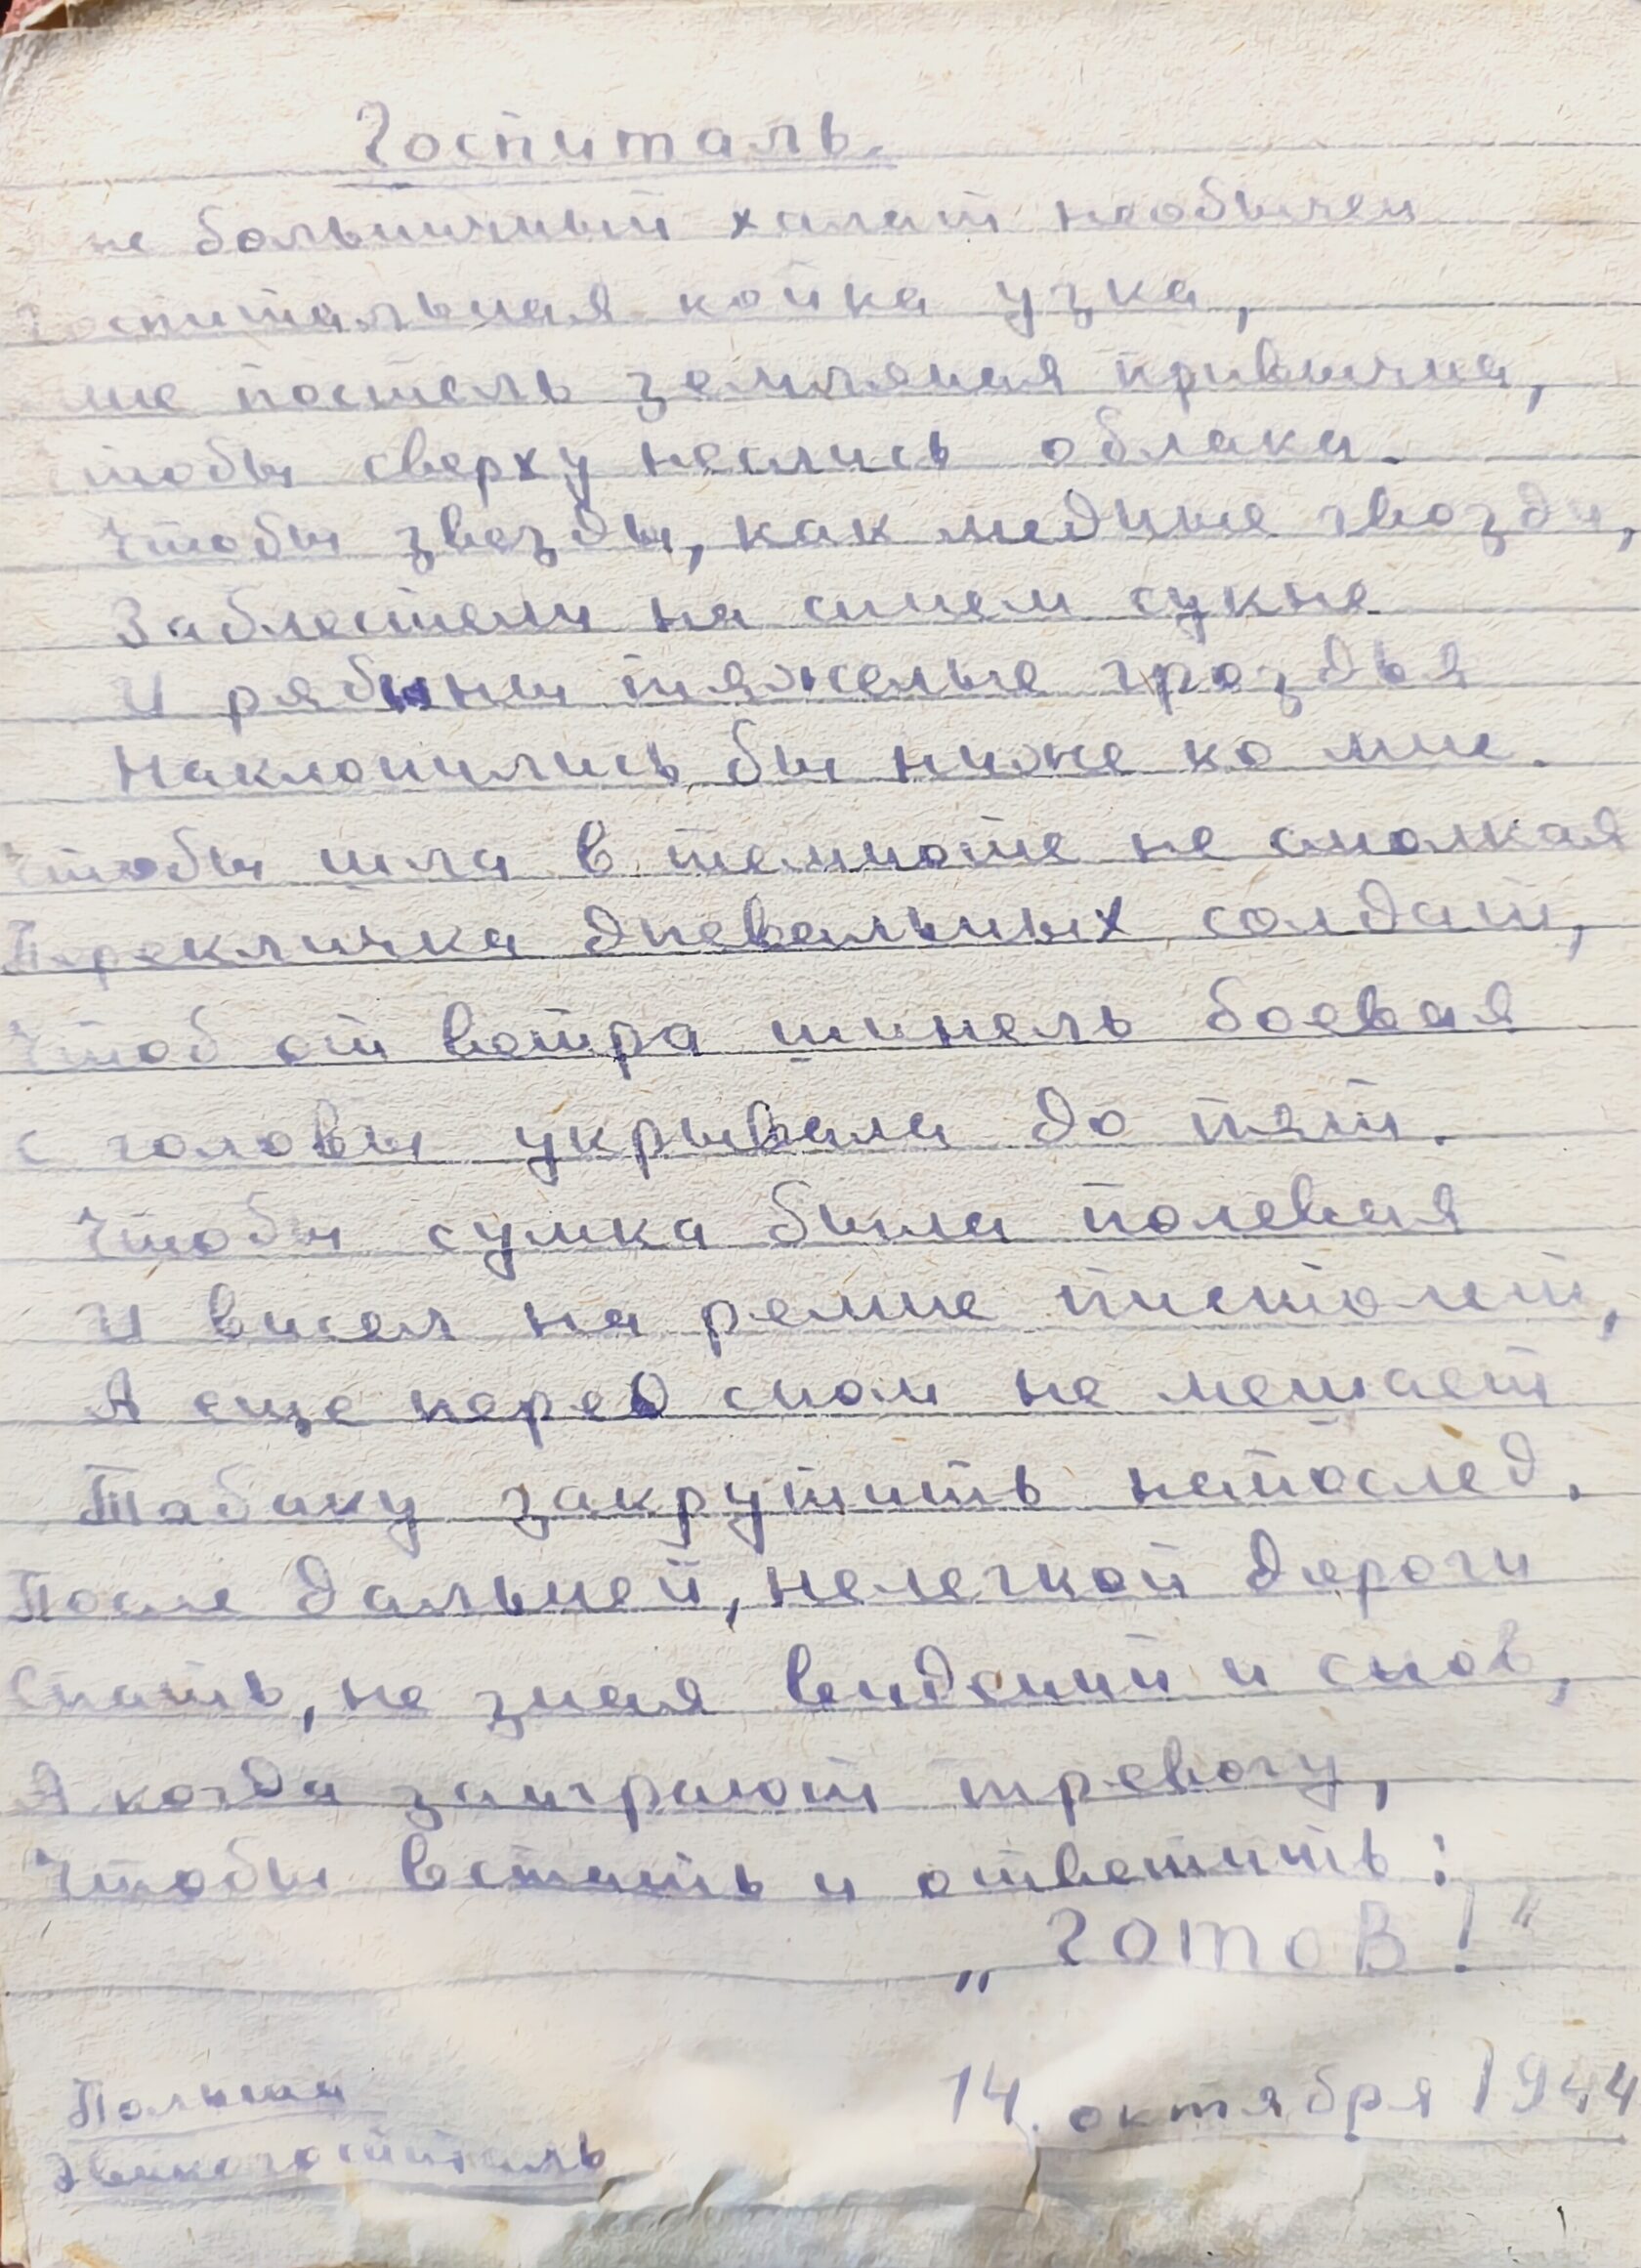 Госпиталь.
не больничный халат необычен
Госпитальная койка узка,
мне постель земляная привычна,
чтобы сверху неслись облака.
Чтобы звезды, как медные гвозди,
Заблестели на синем сукне
И рябины тяжелые гроздья
Наклонились бы ниже ко мне.
Чтобы шла в темноте не смолкая
Перекличка дневальных солдат,
Чтоб от ветра шинель боевая
с головы укрывала до пят.
Чтобы сумка была полевая
И висел на ремне пистолет,
А еще перед сном не мешает
Табаку закрутить напослед.
После дальней, нелегкой дороги
Спать, не зная видений и снов,
А когда заиграют тревогу,
Чтобы встать и ответить:
„Готов!"
14. октября 1944
Польша
Эвакогоспиталь